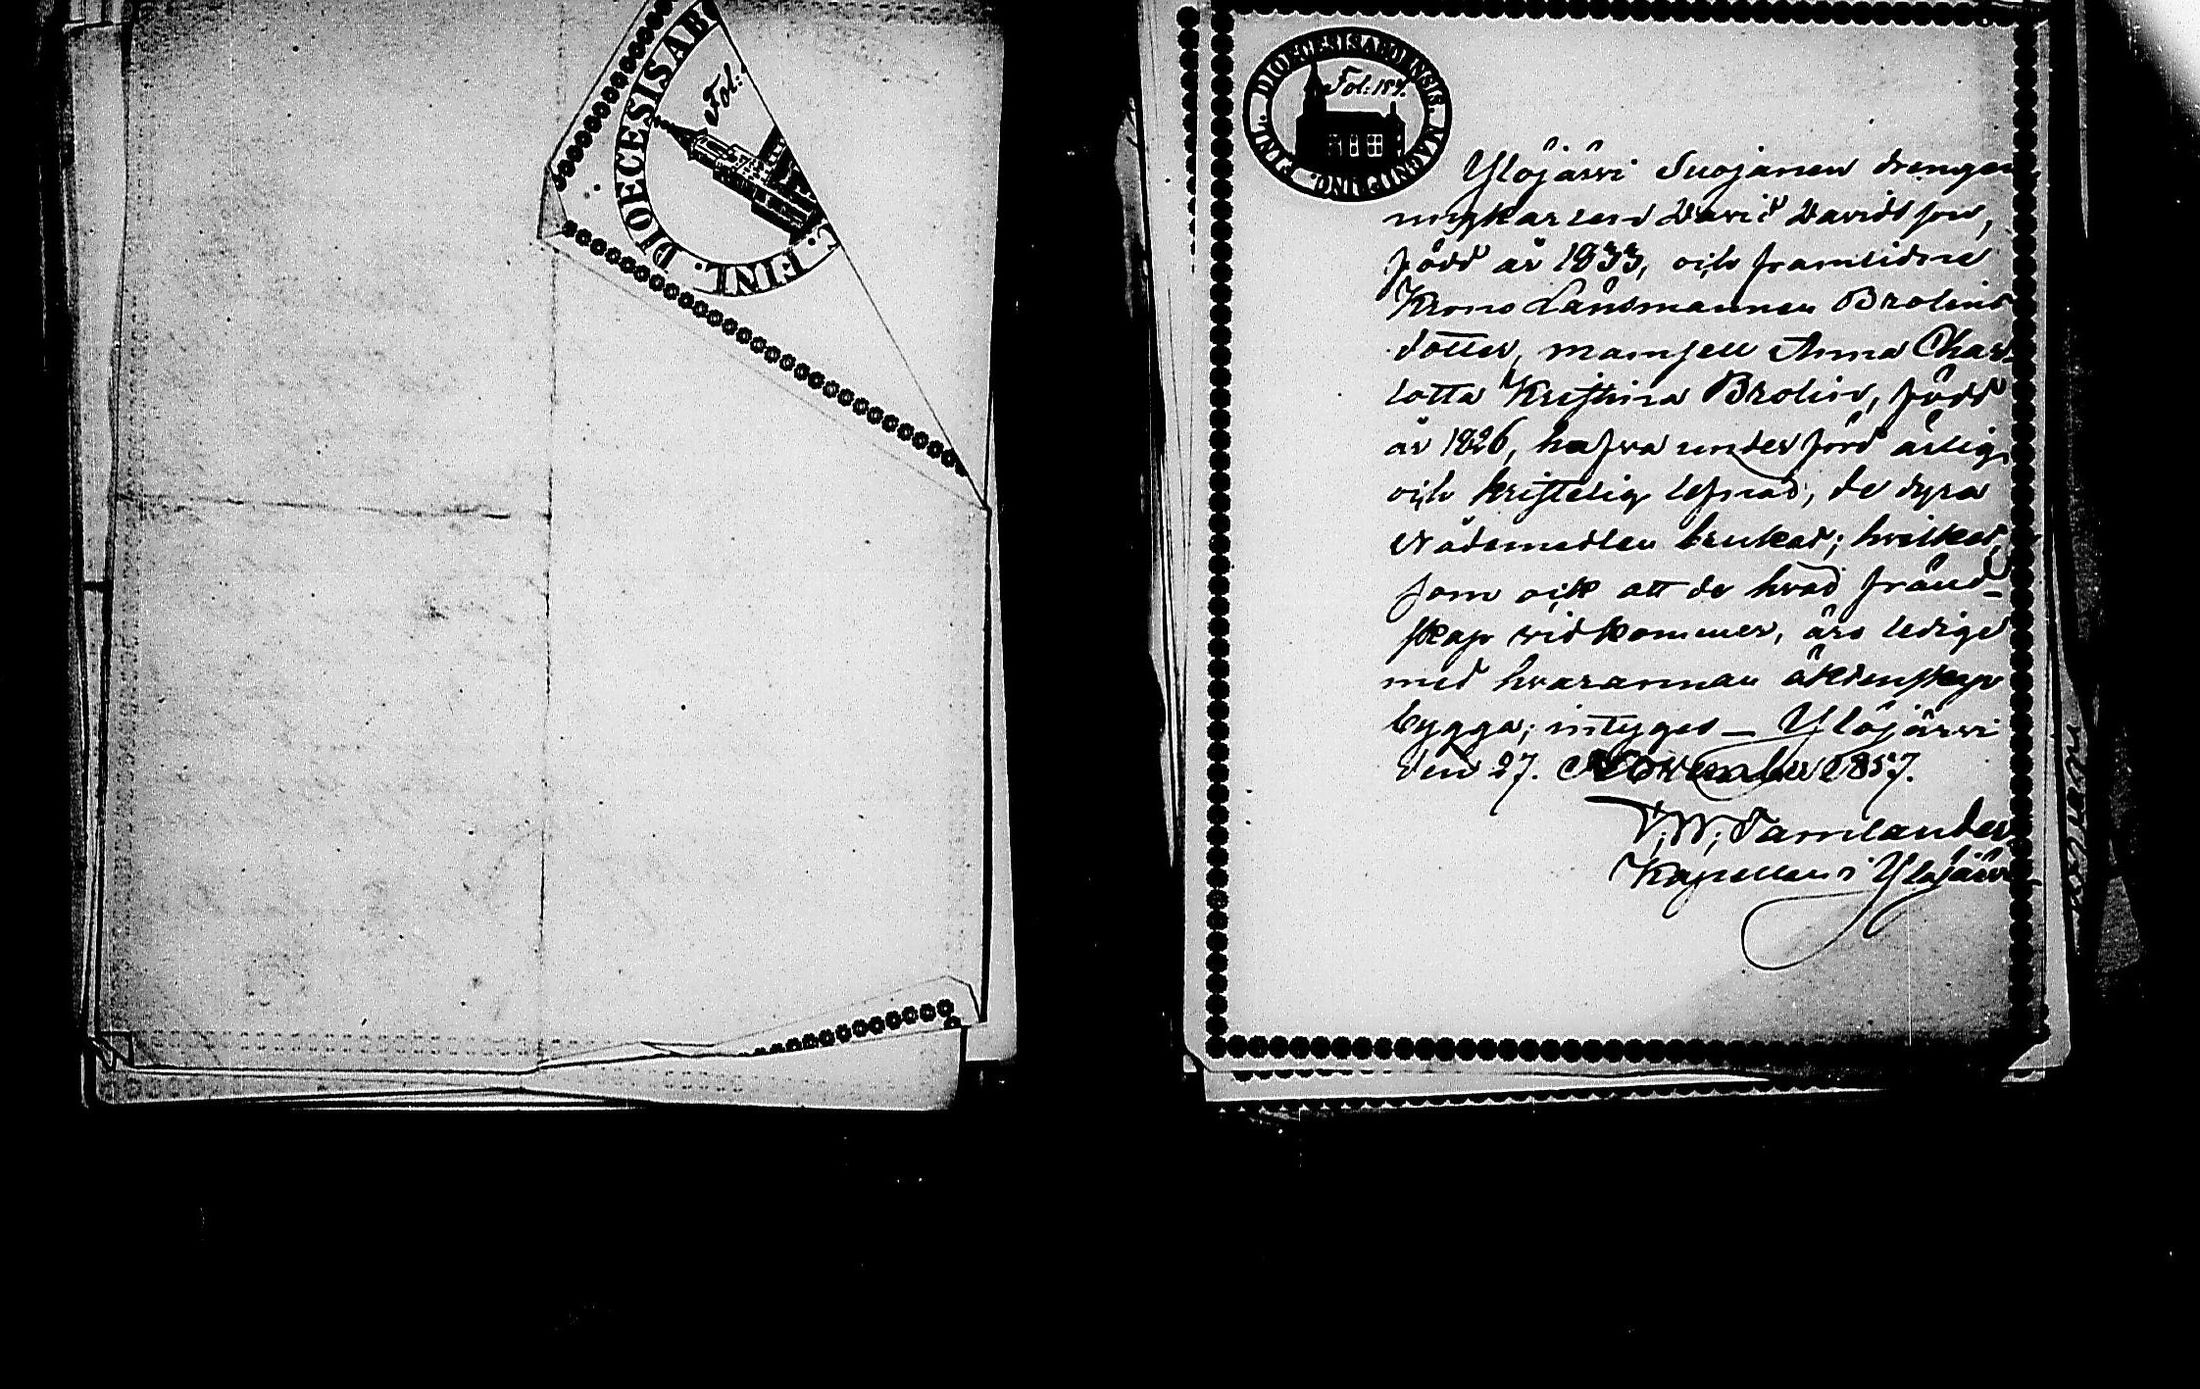 DIOECESISAB
Fol:
FINL.
DIOECESISABOENSIS. MAGNI PRINC. FINL.
Fol: 157.
Ylöjärvi Suojanen drengen
ungkarlen David Davidsson,
född år 1833, och framlidne
Krono Länsmannen Brolins
dotter, mamsell Anna Char-
lotta Kristina Brolin, född
år 1826, hafva under förd ärlig
och kristelig lefnad, de dyra
Nådemedlen brukat; hvilket,
som ock att de hvad fränd-
skap vidkommer, äro ledige
med hvarannan äktenskap
bygga; intyges _ Ylöjärvi
den 27. November 1857.
Kapellan i Ylöjärvi